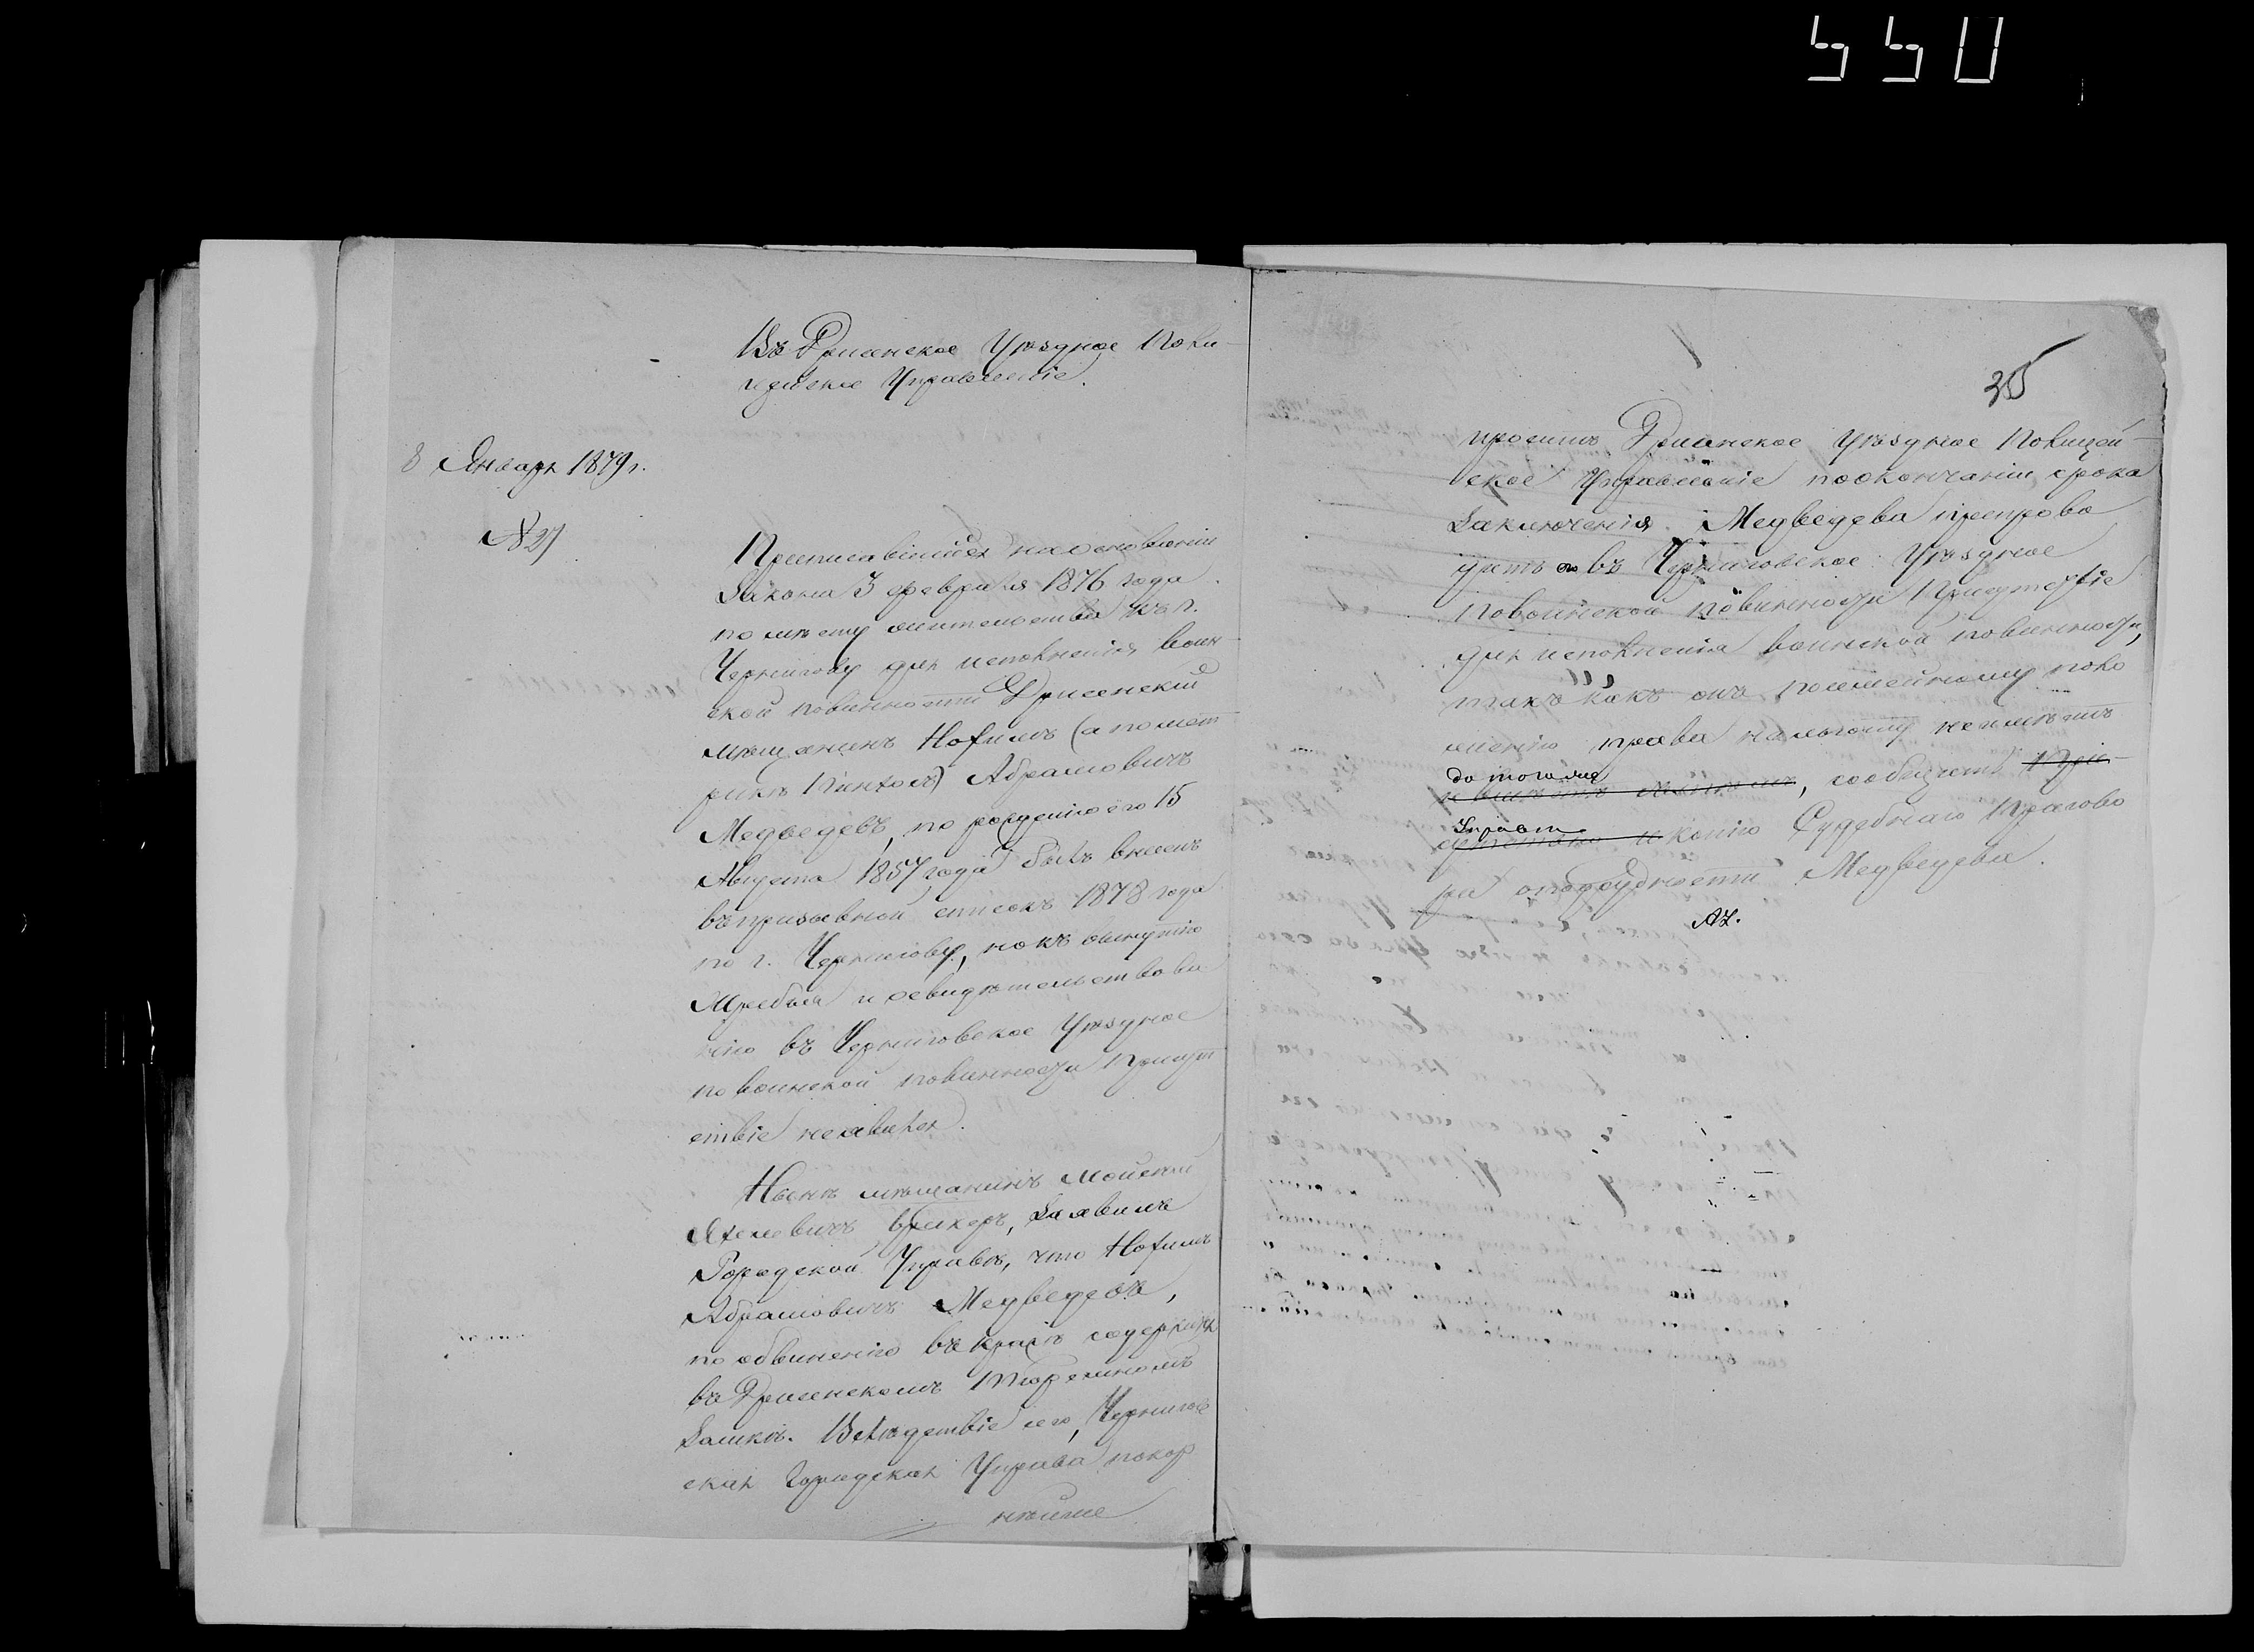 550
Въ Дрисенское Уѣздное Поли-
цейское Управленіе.
8 Января 1879 г.
№ 27
Приписавшійся на основаніи
Закона 3 февраля 1876 года
по мѣсту жительства къ г.
Чернигову для исполненія воин-
ской повинности Дрисенскій
мѣщанинъ Нохимъ (а по мет-
рикѣ Пинхосъ) Абрамовичъ
Медведевъ, по рожденію его 15
Августа 1857 года былъ внесенъ
въ призывной списокъ 1878 года
по г. Чернигову, но къ вынутію
жребія и освидѣтельствова
нію въ Черниговское Уѣздное
по воинской повинности Присут
ствіе не явился.
Нынѣ мѣщанинъ Мойсей
Вункеръ, заявилъ
Городской Управѣ, что Нохимъ
Абрамовичъ Медведевъ,
по обвиненію въ кражѣ содержится
въ Дрисенскомъ Тюремномъ
Замкѣ. Вслѣдствіе сего, Чернигов
ская Городская Управа покор
нѣйше
35
проситъ Дрисенское Уѣздное Полицей-
ское Управленіе по окончаніи срока
Заключенія Медведева препрово
дить въ Черниговское Уѣздное
по воинской повинности Присутствіе
для исполненія воинской повинности,
такъ какъ онъ по семейному поло
женію права на льготу не имѣетъ
до того же
, сообщить
Управѣ
копію Судебнаго Пригово
ра о подсудности Медведева.